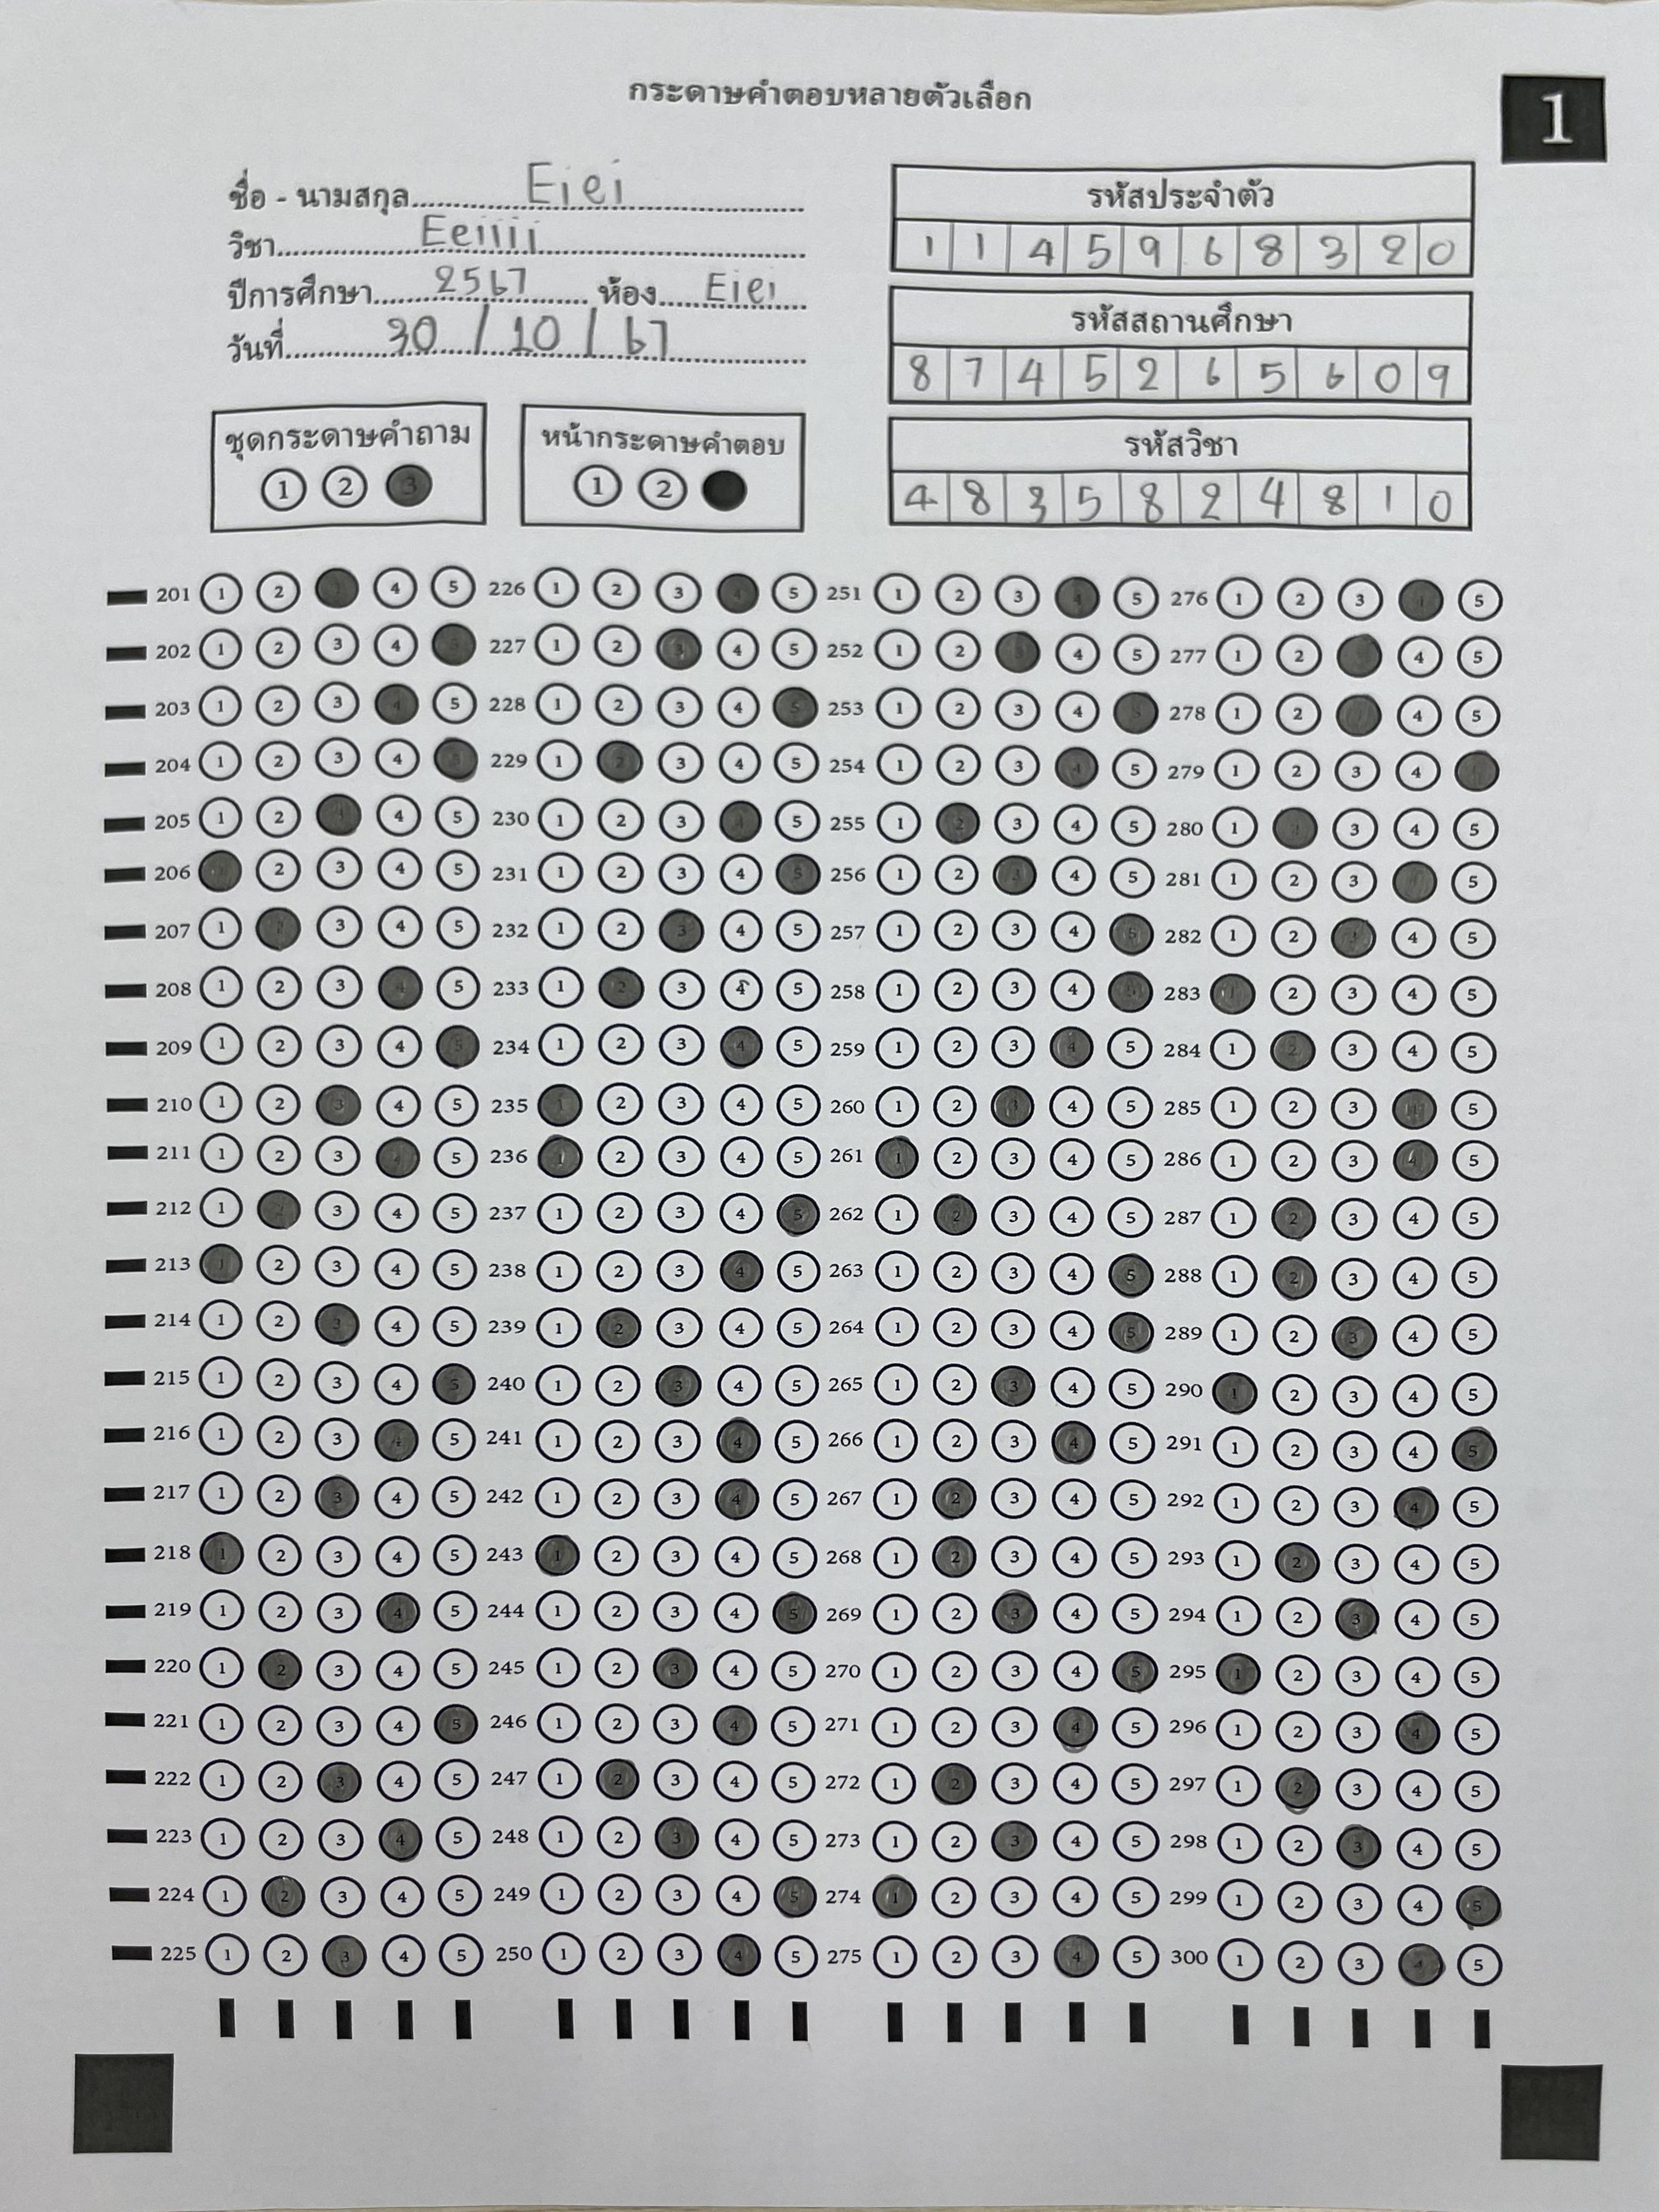 กระดาษคำตอบหลายตัวเลือก
1
ชื่อ - นามสกุล Eiei
วิชา Eeiiii
ปีการศึกษา 2567 ห้อง Eiei
วันที่ 30 / 10 / 67
รหัสประจำตัว
1 1 4 5 9 6 8 3 2 0
รหัสสถานศึกษา
8 7 4 5 2 6 5 6 0 9
รหัสวิชา
4 8 3 5 8 2 4 8 1 0
ชุดกระดาษคำถาม
1 2 3
หน้ากระดาษคำตอบ
1 2
201 1 2 3 4 5 226 1 2 3 4 5 251 1 2 3 4 5 276 1 2 3 4 5
202 1 2 3 4 5 227 1 2 3 4 5 252 1 2 3 4 5 277 1 2 3 4 5
203 1 2 3 4 5 228 1 2 3 4 5 253 1 2 3 4 5 278 1 2 3 4 5
204 1 2 3 4 5 229 1 2 3 4 5 254 1 2 3 4 5 279 1 2 3 4 5
205 1 2 3 4 5 230 1 2 3 4 5 255 1 2 3 4 5 280 1 2 3 4 5
206 1 2 3 4 5 231 1 2 3 4 5 256 1 2 3 4 5 281 1 2 3 4 5
207 1 2 3 4 5 232 1 2 3 4 5 257 1 2 3 4 5 282 1 2 3 4 5
208 1 2 3 4 5 233 1 2 3 4 5 258 1 2 3 4 5 283 1 2 3 4 5
209 1 2 3 4 5 234 1 2 3 4 5 259 1 2 3 4 5 284 1 2 3 4 5
210 1 2 3 4 5 235 1 2 3 4 5 260 1 2 3 4 5 285 1 2 3 4 5
211 1 2 3 4 5 236 1 2 3 4 5 261 1 2 3 4 5 286 1 2 3 4 5
212 1 2 3 4 5 237 1 2 3 4 5 262 1 2 3 4 5 287 1 2 3 4 5
213 1 2 3 4 5 238 1 2 3 4 5 263 1 2 3 4 5 288 1 2 3 4 5
214 1 2 3 4 5 239 1 2 3 4 5 264 1 2 3 4 5 289 1 2 3 4 5
215 1 2 3 4 5 240 1 2 3 4 5 265 1 2 3 4 5 290 1 2 3 4 5
216 1 2 3 4 5 241 1 2 3 4 5 266 1 2 3 4 5 291 1 2 3 4 5
217 1 2 3 4 5 242 1 2 3 4 5 267 1 2 3 4 5 292 1 2 3 4 5
218 1 2 3 4 5 243 1 2 3 4 5 268 1 2 3 4 5 293 1 2 3 4 5
219 1 2 3 4 5 244 1 2 3 4 5 269 1 2 3 4 5 294 1 2 3 4 5
220 1 2 3 4 5 245 1 2 3 4 5 270 1 2 3 4 5 295 1 2 3 4 5
221 1 2 3 4 5 246 1 2 3 4 5 271 1 2 3 4 5 296 1 2 3 4 5
222 1 2 3 4 5 247 1 2 3 4 5 272 1 2 3 4 5 297 1 2 3 4 5
223 1 2 3 4 5 248 1 2 3 4 5 273 1 2 3 4 5 298 1 2 3 4 5
224 1 2 3 4 5 249 1 2 3 4 5 274 1 2 3 4 5 299 1 2 3 4 5
225 1 2 3 4 5 250 1 2 3 4 5 275 1 2 3 4 5 300 1 2 3 4 5